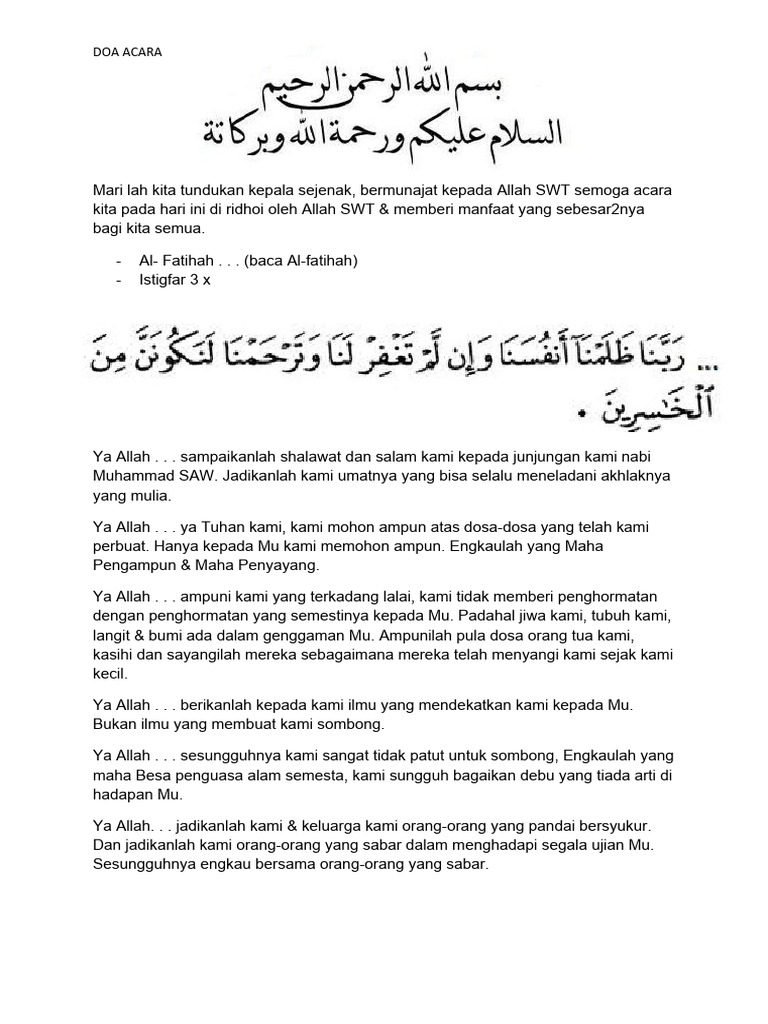 DOA ACARA
بسم الله الرحمن الرحيم
السلام عليكم ورحمة الله وبركاتة
Mari lah kita tundukan kepala sejenak, bermunajat kepada Allah SWT semoga acara
kita pada hari ini di ridhoi oleh Allah SWT & memberi manfaat yang sebesar2nya
bagi kita semua.
- Al- Fatihah . . . (baca Al-fatihah)
- Istigfar 3 x
... رَبَّنَا ظَلَمْنَآ أَنفُسَنَا وَإِن لَّمْ تَغْفِرْ لَنَا وَتَرْحَمْنَا لَنَكُونَنَّ مِنَ
ٱلْخَٰسِرِينَ .
Ya Allah . . . sampaikanlah shalawat dan salam kami kepada junjungan kami nabi
Muhammad SAW. Jadikanlah kami umatnya yang bisa selalu meneladani akhlaknya
yang mulia.
Ya Allah . . . ya Tuhan kami, kami mohon ampun atas dosa-dosa yang telah kami
perbuat. Hanya kepada Mu kami memohon ampun. Engkaulah yang Maha
Pengampun & Maha Penyayang.
Ya Allah . . . ampuni kami yang terkadang lalai, kami tidak memberi penghormatan
dengan penghormatan yang semestinya kepada Mu. Padahal jiwa kami, tubuh kami,
langit & bumi ada dalam genggaman Mu. Ampunilah pula dosa orang tua kami,
kasihi dan sayangilah mereka sebagaimana mereka telah menyangi kami sejak kami
kecil.
Ya Allah . . . berikanlah kepada kami ilmu yang mendekatkan kami kepada Mu.
Bukan ilmu yang membuat kami sombong.
Ya Allah . . . sesungguhnya kami sangat tidak patut untuk sombong, Engkaulah yang
maha Besa penguasa alam semesta, kami sungguh bagaikan debu yang tiada arti di
hadapan Mu.
Ya Allah. . . jadikanlah kami & keluarga kami orang-orang yang pandai bersyukur.
Dan jadikanlah kami orang-orang yang sabar dalam menghadapi segala ujian Mu.
Sesungguhnya engkau bersama orang-orang yang sabar.